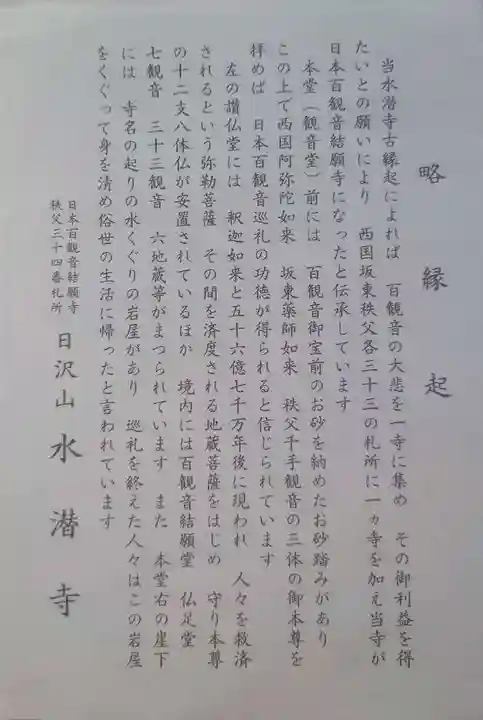 略縁起
当水潜寺古縁起によれば 百観音の大悲を一寺に集め その御利益を得
たいとの願いにより 西国坂東秩父各三十三の札所に一ヵ寺を加え当寺が
日本百観音結願寺になったと伝承しています
本堂（観音堂）前には 百観音御宝前のお砂を納めたお砂踏みがあり
この上で西国阿弥陀如来 坂東薬師如来 秩父千手観音の三体の御本尊を
拝めば 日本百観音巡礼の功徳が得られると信じられています
左の讃仏堂には 釈迦如来と五十六億七千万年後に現われ 人々を救済
されるという弥勒菩薩 その間を済度される地蔵菩薩をはじめ 守り本尊
の十二支八体仏が安置されているほか 境内には百観音結願堂 仏足堂
七観音 三十三観音 六地蔵等がまつられています また 本堂右の崖下
には 寺名の起りの水くぐりの岩屋があり 巡礼を終えた人々はこの岩屋
をくぐって身を清め俗世の生活に帰ったと言われています
日本百観音結願寺
秩父三十四番札所
日沢山 水潜寺